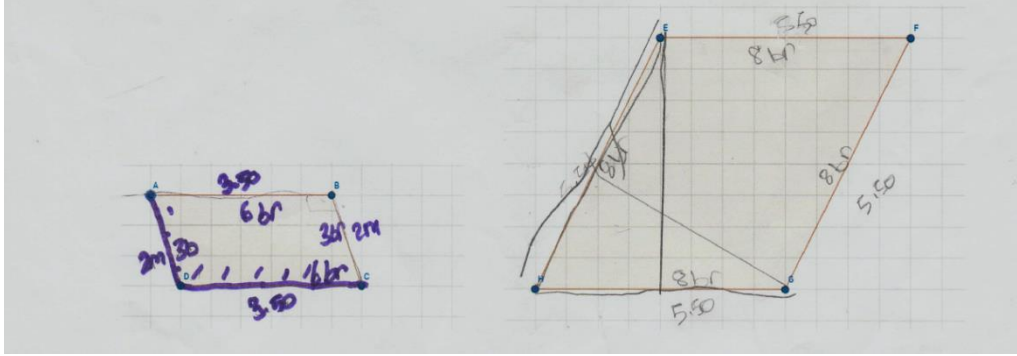 A
B
3.50
6 br
2m
3b
3br
2m
D
6br
C
3.50
E
F
5.50
8 br
8br
8br
5.50
H
G
8br
5.50